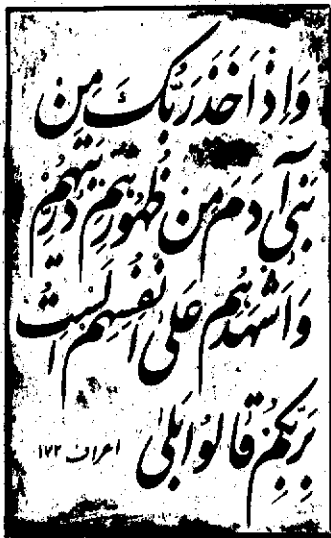 وَاِذْ اَخَذَ رَبُّكَ مِن
بَنی آدَمَ مِن ظُهُورِهِم ذُرِّیَتَهُم
وَاَشْهَدَهُم عَلی اَنفُسِهِم اَلَستُ
بِرَبِّکُم قالُوا بَلی اعراف ۱۷۲